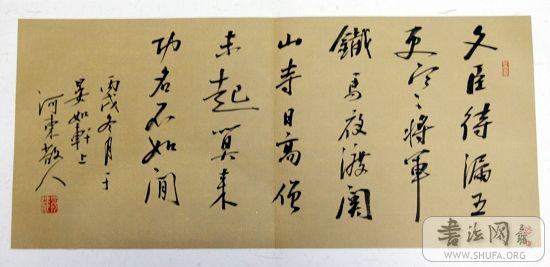 文臣待漏五
更寒将軍
鐵馬夜渡関
山寺日高僧
未起算来
功名不如閒
丙戌冬月于
晏如軒上
河東散人
書法网
WWW.SHUFA.ORG